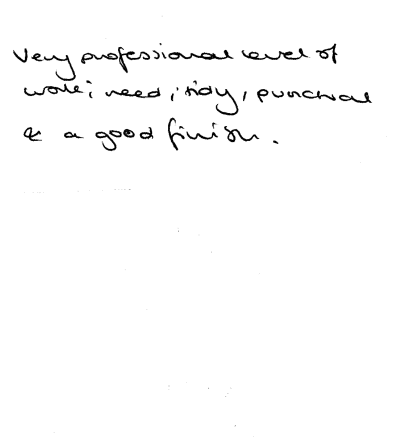 Very professional level of
work; need, tidy, punctual
& a good finish.